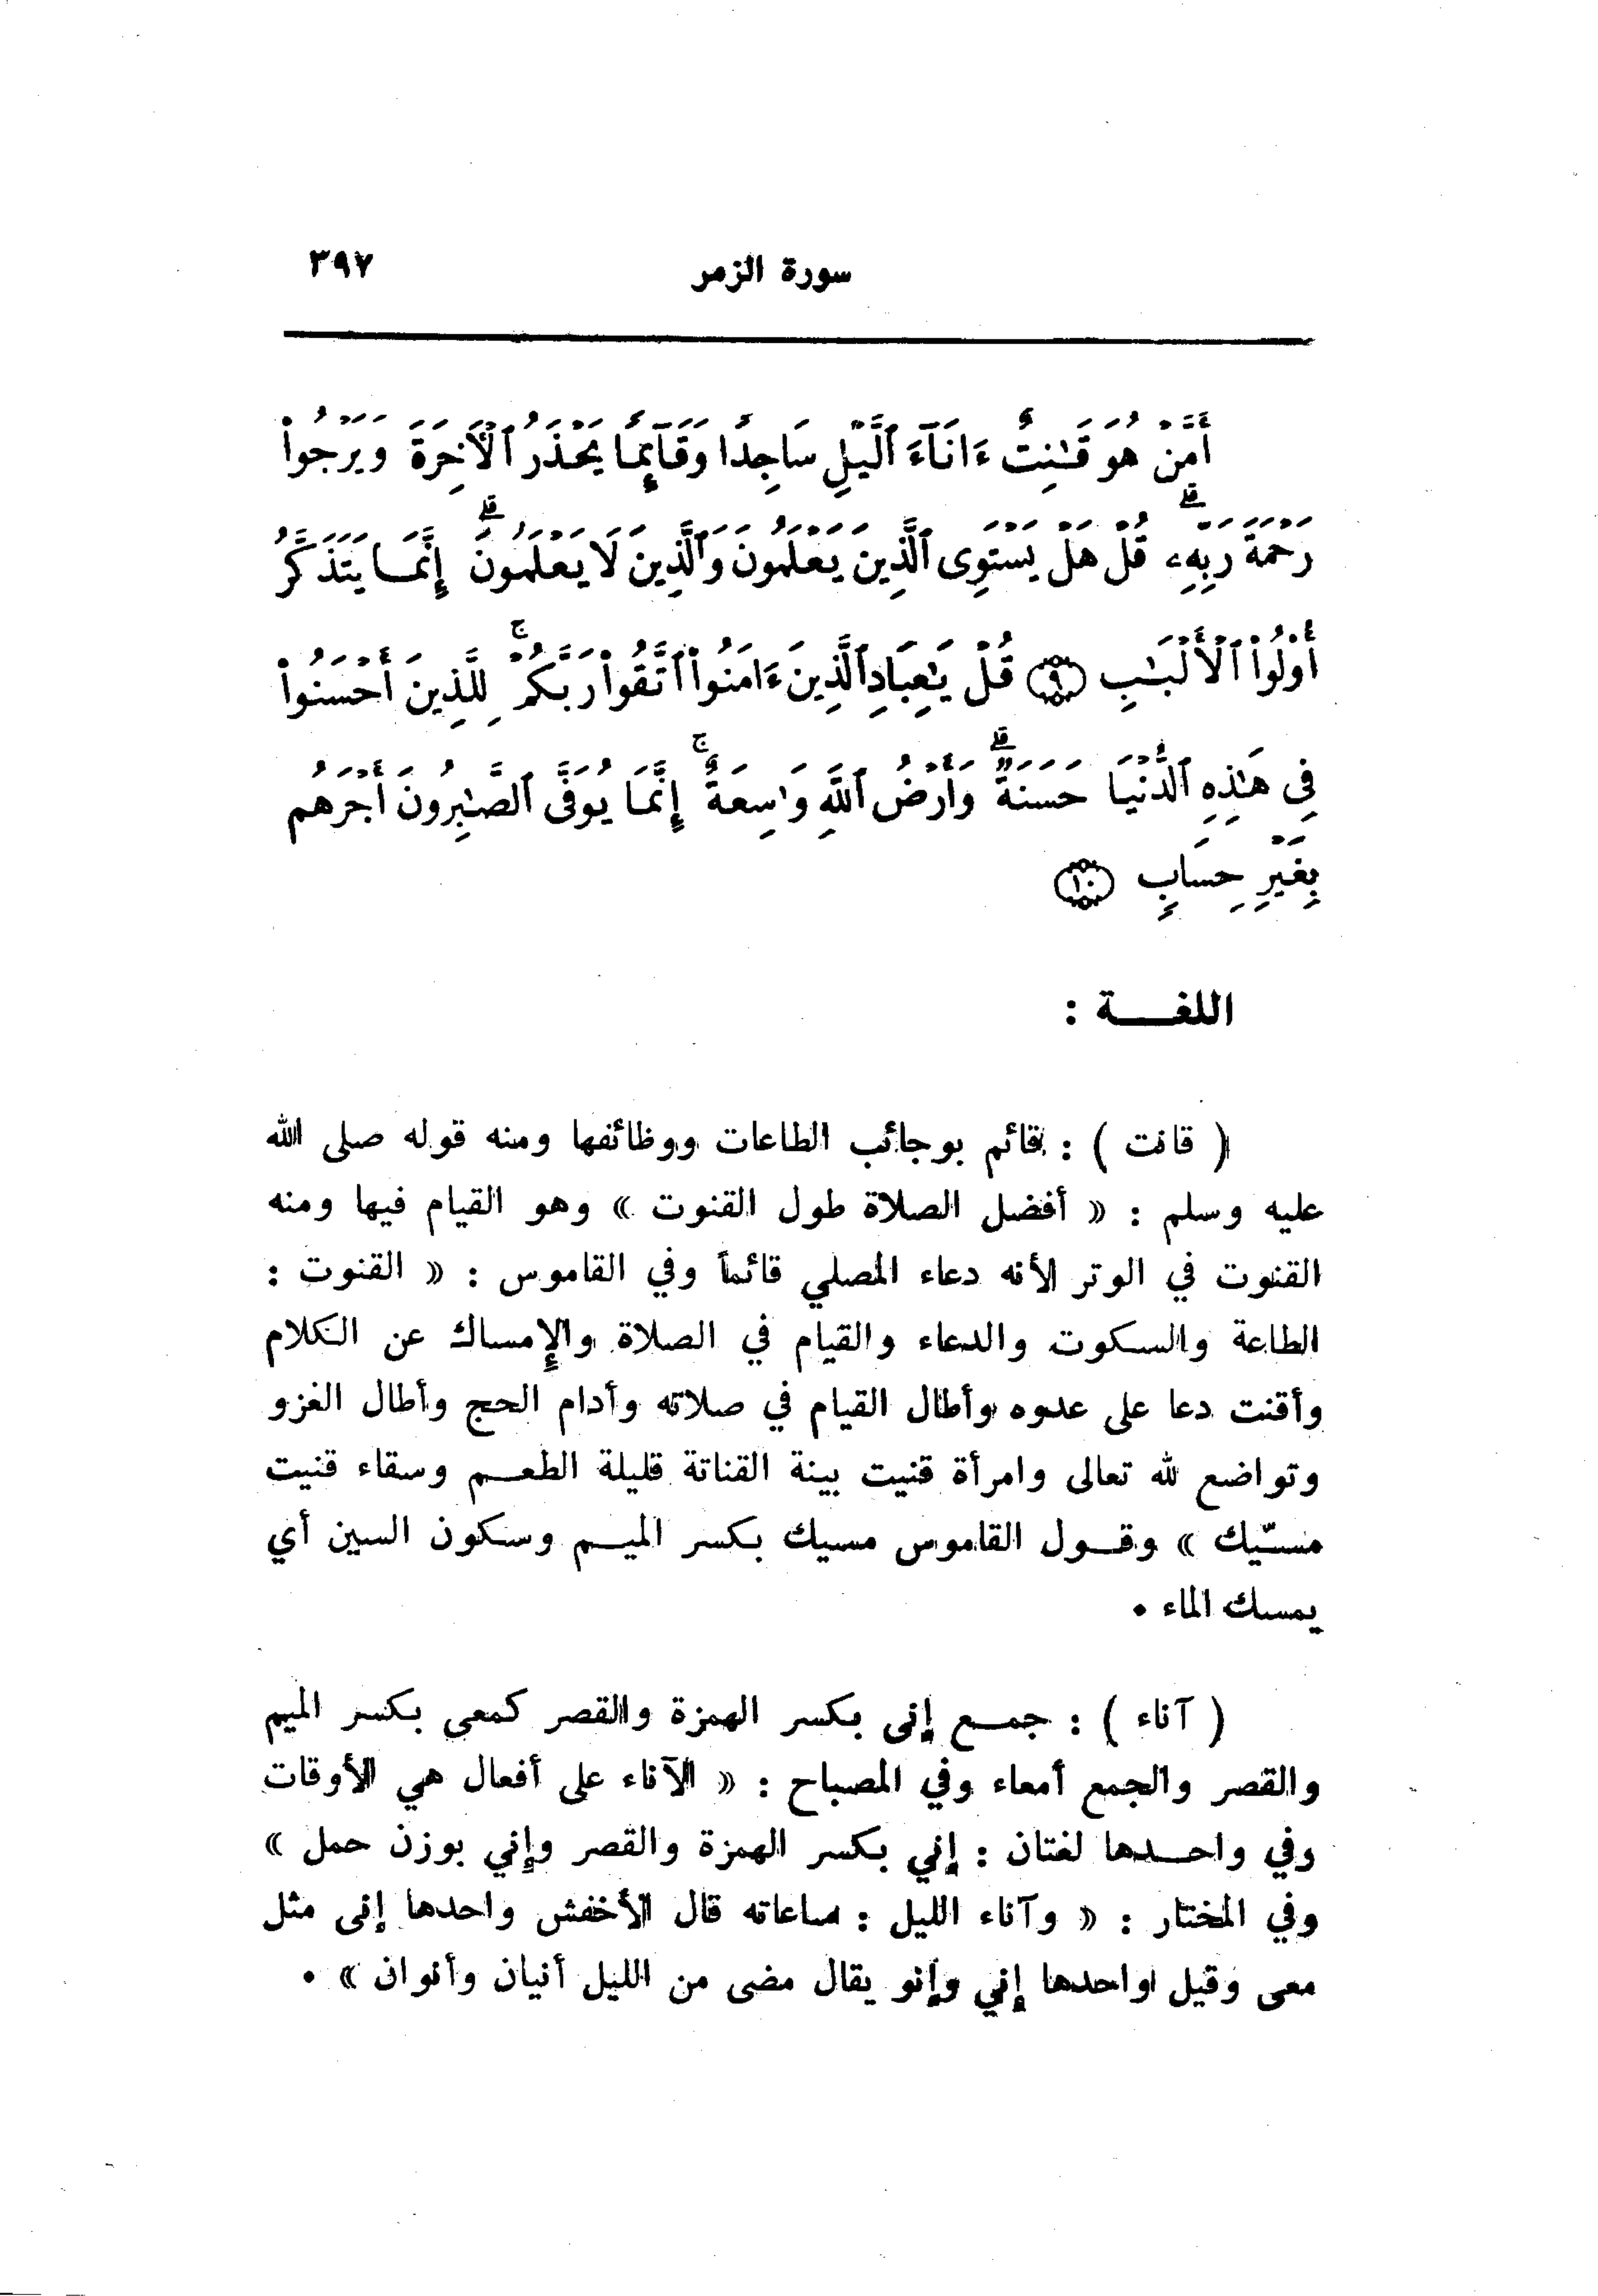 سورة الزمر ٣٩٧
أَمَّنْ هُوَ قَـٰنِتٌ ءَانَآءَ ٱلَّيْلِ سَاجِدًا وَقَآئِمًا يَحْذَرُ ٱلْـَٔاخِرَةَ وَيَرْجُوا۟
رَحْمَةَ رَبِّهِۦ ۗ قُلْ هَلْ يَسْتَوِى ٱلَّذِينَ يَعْلَمُونَ وَٱلَّذِينَ لَا يَعْلَمُونَ ۗ إِنَّمَا يَتَذَكَّرُ
أُو۟لُوا۟ ٱلْأَلْبَـٰبِ ﴿٩﴾ قُلْ يَـٰعِبَادِ ٱلَّذِينَ ءَامَنُوا۟ ٱتَّقُوا۟ رَبَّكُمْ ۚ لِلَّذِينَ أَحْسَنُوا۟
فِى هَـٰذِهِ ٱلدُّنْيَا حَسَنَةٌ ۗ وَأَرْضُ ٱللَّهِ وَٰسِعَةٌ ۚ إِنَّمَا يُوَفَّى ٱلصَّـٰبِرُونَ أَجْرَهُم
بِغَيْرِ حِسَابٍ ﴿١٠﴾
اللغـــة :
( قانت ) : قائم بوجائب الطاعات ووظائفها ومنه قوله صلى الله
عليه وسلم : « أفضل الصلاة طول القنوت » وهو القيام فيها ومنه
القنوت في الوتر لأنه دعاء المصلي قائماً وفي القاموس : « القنوت :
الطاعة والسكوت والدعاء والقيام في الصلاة والإمساك عن الكلام
وأقنت دعا على عدوه وأطال القيام في صلاته وأدام الحج وأطال الغزو
وتواضع لله تعالى وامرأة قنيت بينة القناتة قليلة الطعـم وسقاء قنيت
مسّيك » وقـول القاموس مسيك بكسر الميـم وسكون السين أي
يمسك الماء .
( آناء ) : جمـع إنى بكسر الهمزة والقصر كمعى بكسر الميم
والقصر والجمع أمعاء وفي المصباح : « الآناء على أفعال هي الأوقات
وفي واحـدها لغتان : إني بكسر الهمزة والقصر وإني بوزن حمل »
وفي المختار : « وآناء الليل : ساعاته قال الأخفش واحدها إنى مثل
معى وقيل واحدها إني وإنو يقال مضى من الليل أنيان وأنوان » .